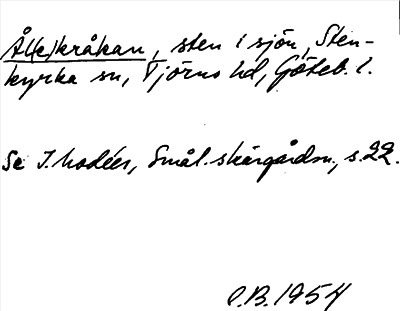 Ål(e)kråkan, sten i sjön, Sten-
kyrka sn, Tjörns hd, Göteb. l.
Se I. Modéer, Smål. skärgårdsn., s. 22.
O.B. 1954